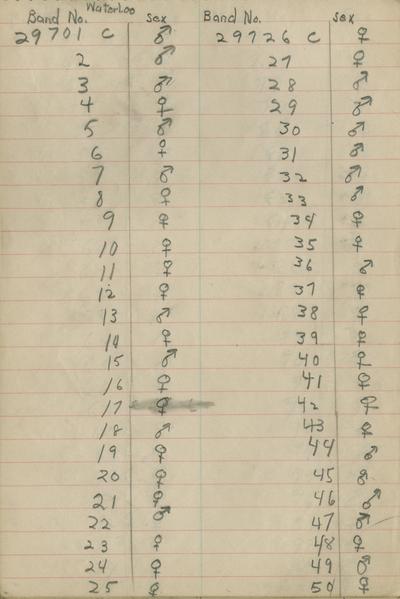 Waterloo
Band No. sex Band No. sex
29701 C ♂ 29726 C ♀
2 ♂ 27 ♀
3 ♂ 28 ♂
4 ♀ 29 ♂
5 ♂ 30 ♂
6 ♀ 31 ♂
7 ♂ 32 ♂
8 ♀ 33 ♂
9 ♀ 34 ♀
10 ♀ 35 ♀
11 ♀ 36 ♂
12 ♀ 37 ♀
13 ♂ 38 ♀
14 ♀ 39 ♀
15 ♂ 40 ♀
16 ♀ 41 ♀
17 ♀ 42 ♀
18 ♂ 43 ♀
19 ♀ 44 ♂
20 ♀ 45
21 ♀ 46 ♂
22 ♂ 47 ♂
23 ♀ 48 ♀
24 ♀ 49 ♂
25 ♀ 50 ♀